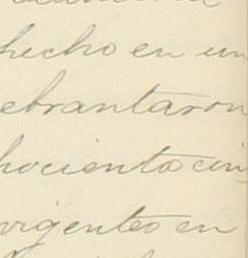 hecho en un
ebrantaron
hocientocin
vigentes en